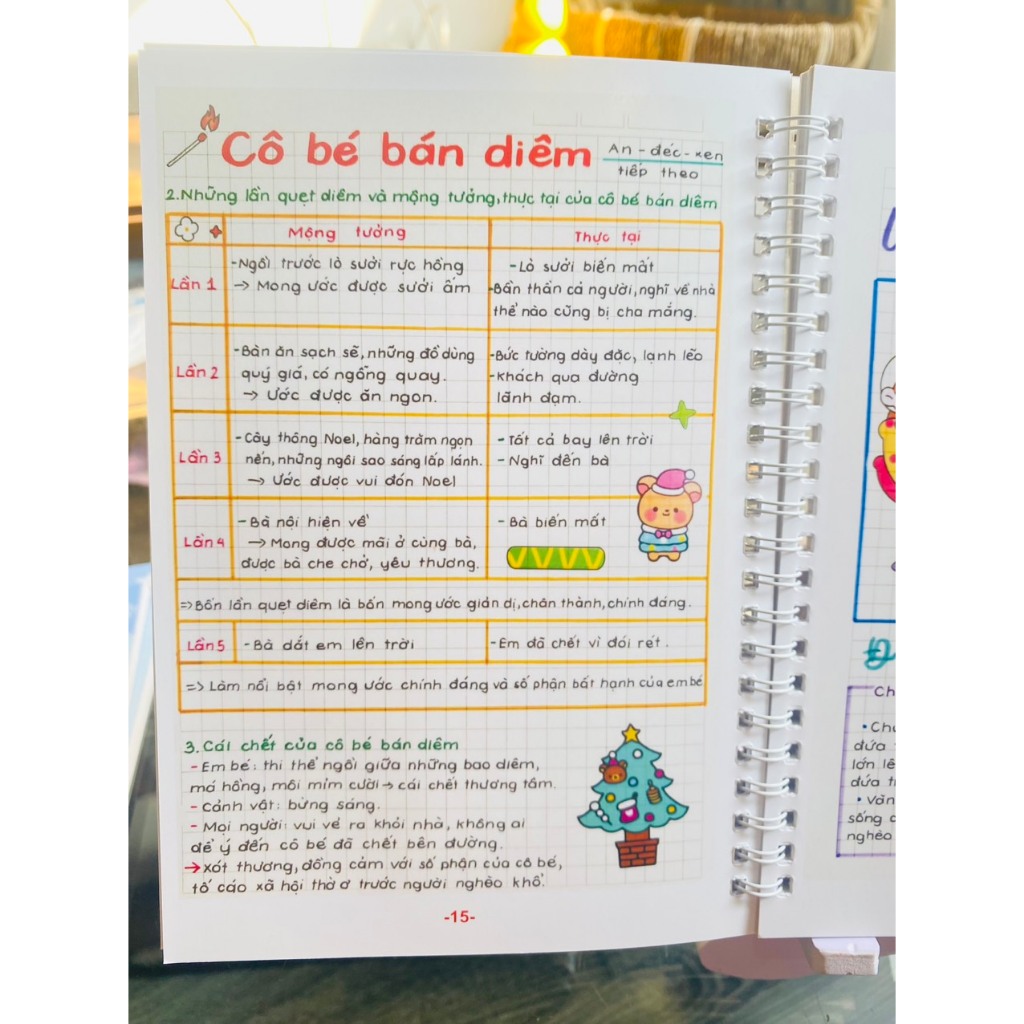 Cô bé bán diêm
An - đéc - xen
tiếp theo
2. Những lần quẹt diêm và mộng tưởng, thực tại của cô bé bán diêm
Mộng tưởng
Thực tại
Lần 1
- Ngồi trước lò sưởi rực hồng
→ Mong ước được sưởi ấm
- Lò sưởi biến mất
- Bần thần cả người, nghĩ về nhà
thể nào cũng bị cha mắng.
Lần 2
- Bàn ăn sạch sẽ, những đồ dùng
quý giá, có ngỗng quay.
→ Ước được ăn ngon.
- Bức tường dày đặc, lạnh lẽo
- Khách qua đường
lãnh đạm.
Lần 3
- Cây thông Noel, hàng trăm ngọn
nến, những ngôi sao sáng lấp lánh.
→ Ước được vui đón Noel
- Tất cả bay lên trời
- Nghĩ đến bà
Lần 4
- Bà nội hiện về
→ Mong được mãi ở cùng bà,
được bà che chở, yêu thương.
- Bà biến mất
=> Bốn lần quẹt diêm là bốn mong ước giản dị, chân thành, chính đáng.
Lần 5
- Bà dắt em lên trời
- Em đã chết vì đói rét.
=> Làm nổi bật mong ước chính đáng và số phận bất hạnh của em bé
3. Cái chết của cô bé bán diêm
- Em bé: thi thể ngồi giữa những bao diêm,
má hồng, môi mỉm cười → cái chết thương tâm.
- Cảnh vật: bừng sáng.
- Mọi người: vui vẻ ra khỏi nhà, không ai
để ý đến cô bé đã chết bên đường.
→ xót thương, đồng cảm với số phận của cô bé,
tố cáo xã hội thờ ơ trước người nghèo khổ.
-15-
dứa
lớn
dứa
sống
nghèo